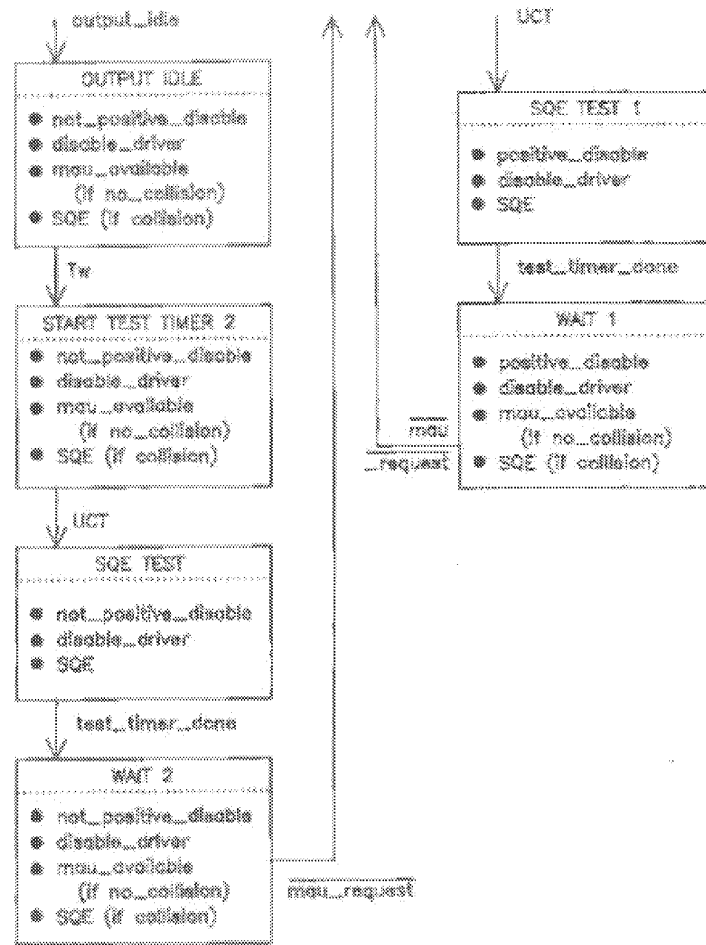 output_idle
OUTPUT IDLE
● not_positive_disable
● disable_driver
● mau_available
(if no_collision)
● SQE (if collision)
Tw
START TEST TIMER 2
● not_positive_disable
● disable_driver
● mau_available
(if no_collision)
● SQE (if collision)
UCT
SQE TEST
● not_positive_disable
● disable_driver
● SQE
test_timer_done
WAIT 2
● not_positive_disable
● disable_driver
● mau_available
(if no_collision)
● SQE (if collision)
mau_request
UCT
SQE TEST 1
● positive_disable
● disable_driver
● SQE
test_timer_done
WAIT 1
● positive_disable
● disable_driver
● mau_available
(if no_collision)
● SQE (if collision)
mau
_request